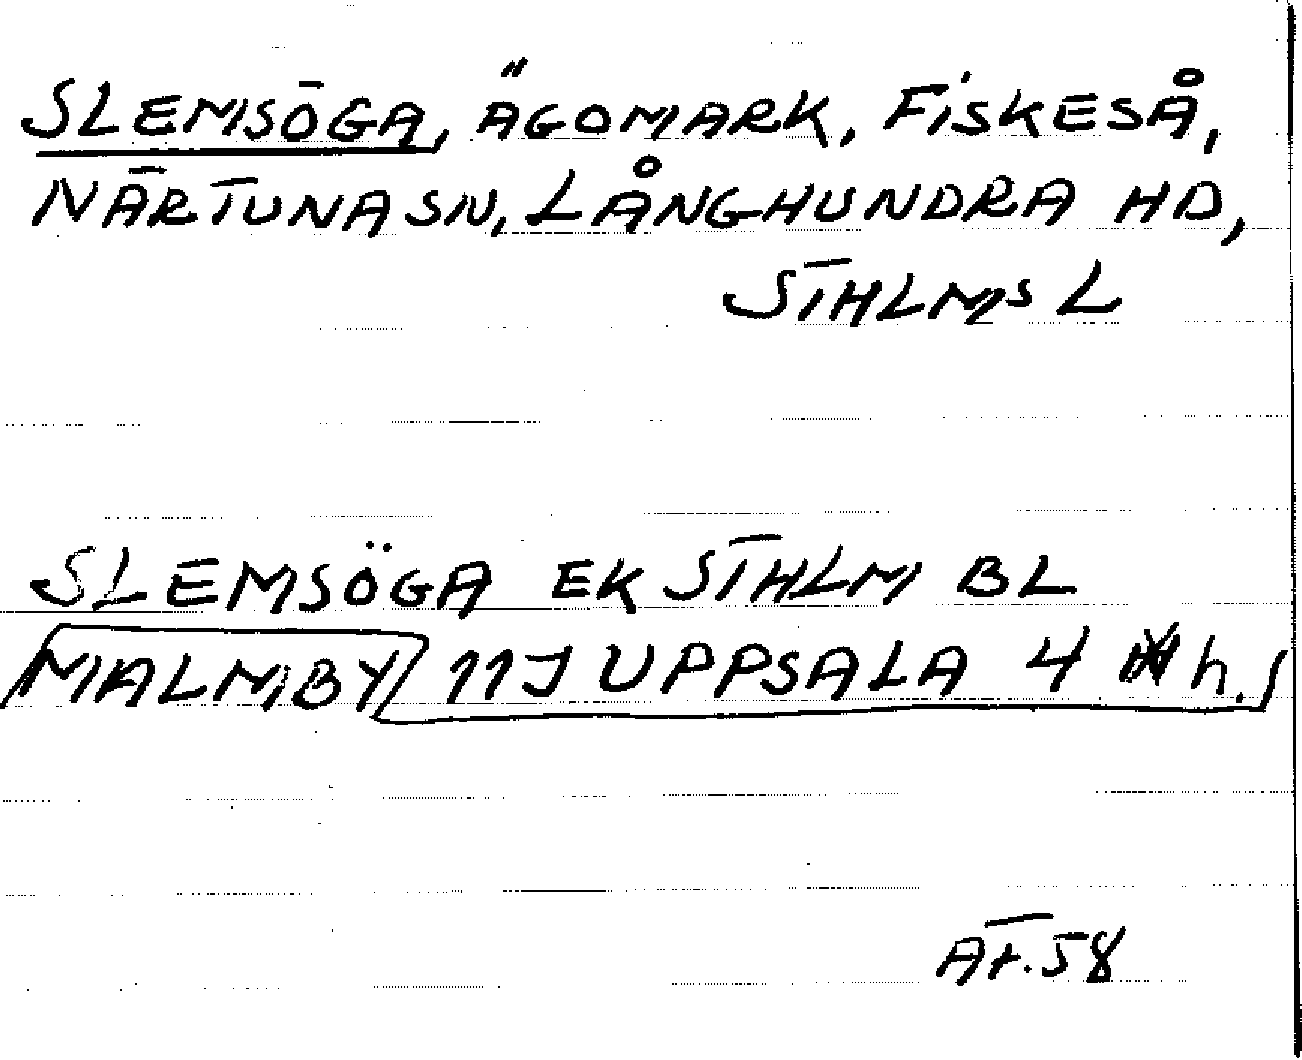 SLEMSÖGA, ÄGOMARK, FISKESÅ,
NÄRTUNA SN, LÅNGHUNDRA HD,
STHLMS L
SLEMSÖGA EK STHLM BL
MALMBY 11J UPPSALA 4 h.
AT.58